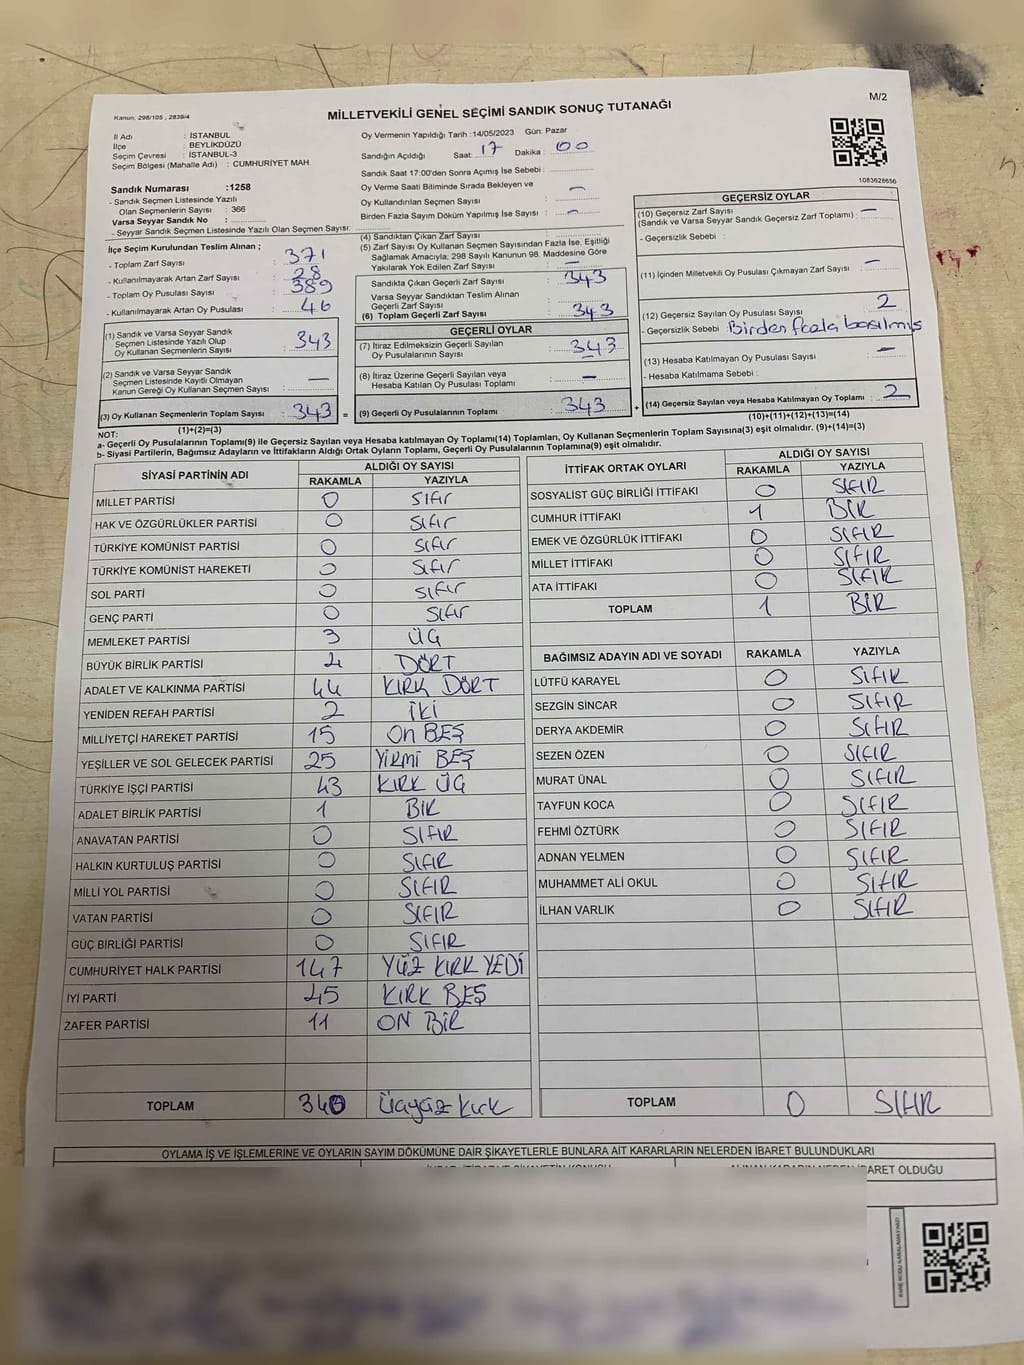 M/2
Kanun, 298/105 , 2839/4
MİLLETVEKİLİ GENEL SEÇİMİ SANDIK SONUÇ TUTANAĞI
İl Adı : İSTANBUL
İlçe : BEYLİKDÜZÜ
Seçim Çevresi : İSTANBUL-3
Seçim Bölgesi (Mahalle Adı) : CUMHURİYET MAH.
Sandık Numarası :1258
- Sandık Seçmen Listesinde Yazılı
Olan Seçmenlerin Sayısı : 366
Varsa Seyyar Sandık No :
- Seyyar Sandık Seçmen Listesinde Yazılı Olan Seçmen Sayısı:
Oy Vermenin Yapıldığı Tarih : 14/05/2023 Gün: Pazar
Sandığın Açıldığı Saat: 17 Dakika : 00
Sandık Saat 17:00'den Sonra Açılmış İse Sebebi :
Oy Verme Saati Bitiminde Sırada Bekleyen ve
Oy Kullandırılan Seçmen Sayısı : —
Birden Fazla Sayım Döküm Yapılmış İse Sayısı : —
1083628656
İlçe Seçim Kurulundan Teslim Alınan ;
- Toplam Zarf Sayısı : 371
- Kullanılmayarak Artan Zarf Sayısı : 28
- Toplam Oy Pusulası Sayısı : 389
- Kullanılmayarak Artan Oy Pusulası : 46
(1) Sandık ve Varsa Seyyar Sandık
Seçmen Listesinde Yazılı Olup
Oy Kullanan Seçmenlerin Sayısı : 343
(2) Sandık ve Varsa Seyyar Sandık
Seçmen Listesinde Kayıtlı Olmayan
Kanun Gereği Oy Kullanan Seçmen Sayısı : —
(3) Oy Kullanan Seçmenlerin Toplam Sayısı : 343 =
(1)+(2)=(3)
(4) Sandıktan Çıkan Zarf Sayısı :
(5) Zarf Sayısı Oy Kullanan Seçmen Sayısından Fazla İse, Eşitliği
Sağlamak Amacıyla; 298 Sayılı Kanunun 98. Maddesine Göre
Yakılarak Yok Edilen Zarf Sayısı : —
Sandıkta Çıkan Geçerli Zarf Sayısı : 343
Varsa Seyyar Sandıktan Teslim Alınan
Geçerli Zarf Sayısı :
(6) Toplam Geçerli Zarf Sayısı : 343
GEÇERLİ OYLAR
(7) İtiraz Edilmeksizin Geçerli Sayılan
Oy Pusulalarının Sayısı : 343
(8) İtiraz Üzerine Geçerli Sayılan veya
Hesaba Katılan Oy Pusulası Toplamı : —
(9) Geçerli Oy Pusulalarının Toplamı : 343 +
GEÇERSİZ OYLAR
(10) Geçersiz Zarf Sayısı
(Sandık ve Varsa Seyyar Sandık Geçersiz Zarf Toplamı) : —
- Geçersizlik Sebebi :
(11) İçinden Milletvekili Oy Pusulası Çıkmayan Zarf Sayısı : —
(12) Geçersiz Sayılan Oy Pusulası Sayısı : 2
- Geçersizlik Sebebi : Birden fazla basılmış
(13) Hesaba Katılmayan Oy Pusulası Sayısı : —
- Hesaba Katılmama Sebebi :
(14) Geçersiz Sayılan veya Hesaba Katılmayan Oy Toplamı : 2
(10)+(11)+(12)+(13)=(14)
NOT:
a- Geçerli Oy Pusulalarının Toplamı(9) ile Geçersiz Sayılan veya Hesaba katılmayan Oy Toplamı(14) Toplamları, Oy Kullanan Seçmenlerin Toplam Sayısına(3) eşit olmalıdır. (9)+(14)=(3)
b- Siyasi Partilerin, Bağımsız Adayların ve İttifakların Aldığı Ortak Oyların Toplamı, Geçerli Oy Pusulalarının Toplamına(9) eşit olmalıdır.
SİYASİ PARTİNİN ADI ALDIĞI OY SAYISI
RAKAMLA YAZIYLA
MİLLET PARTİSİ 0 Sıfır
HAK VE ÖZGÜRLÜKLER PARTİSİ 0 Sıfır
TÜRKİYE KOMÜNİST PARTİSİ 0 Sıfır
TÜRKİYE KOMÜNİST HAREKETİ 0 Sıfır
SOL PARTİ 0 Sıfır
GENÇ PARTİ 0 Sıfır
MEMLEKET PARTİSİ 3 ÜÇ
BÜYÜK BİRLİK PARTİSİ 4 DÖRT
ADALET VE KALKINMA PARTİSİ 44 KIRK DÖRT
YENİDEN REFAH PARTİSİ 2 İKİ
MİLLİYETÇİ HAREKET PARTİSİ 15 On BEŞ
YEŞİLLER VE SOL GELECEK PARTİSİ 25 YİRMİ BEŞ
TÜRKİYE İŞÇİ PARTİSİ 43 KIRK ÜÇ
ADALET BİRLİK PARTİSİ 1 BİR
ANAVATAN PARTİSİ 0 SIFIR
HALKIN KURTULUŞ PARTİSİ 0 SIFIR
MİLLİ YOL PARTİSİ 0 SIFIR
VATAN PARTİSİ 0 SIFIR
GÜÇ BİRLİĞİ PARTİSİ 0 SIFIR
CUMHURİYET HALK PARTİSİ 147 YÜZ KIRK YEDİ
İYİ PARTİ 45 KIRK BEŞ
ZAFER PARTİSİ 11 ON BİR
TOPLAM 340 Üçyüz kırk
İTTİFAK ORTAK OYLARI ALDIĞI OY SAYISI
RAKAMLA YAZIYLA
SOSYALİST GÜÇ BİRLİĞİ İTTİFAKI 0 SIFIR
CUMHUR İTTİFAKI 1 BİR
EMEK VE ÖZGÜRLÜK İTTİFAKI 0 SIFIR
MİLLET İTTİFAKI 0 SIFIR
ATA İTTİFAKI 0 SIFIR
TOPLAM 1 BİR
BAĞIMSIZ ADAYIN ADI VE SOYADI RAKAMLA YAZIYLA
LÜTFÜ KARAYEL 0 SIFIR
SEZGİN SİNCAR 0 SIFIR
DERYA AKDEMİR 0 SIFIR
SEZEN ÖZEN 0 SIFIR
MURAT ÜNAL 0 SIFIR
TAYFUN KOCA 0 SIFIR
FEHMİ ÖZTÜRK 0 SIFIR
ADNAN YELMEN 0 SIFIR
MUHAMMET ALİ OKUL 0 SIFIR
İLHAN VARLIK 0 SIFIR
TOPLAM 0 SIFIR
OYLAMA İŞ VE İŞLEMLERİNE VE OYLARIN SAYIM DÖKÜMÜNE DAİR ŞİKAYETLERLE BUNLARA AİT KARARLARIN NELERDEN İBARET BULUNDUKLARI
İBARET OLDUĞU
KARE KODU KARALAMAYINIZ!